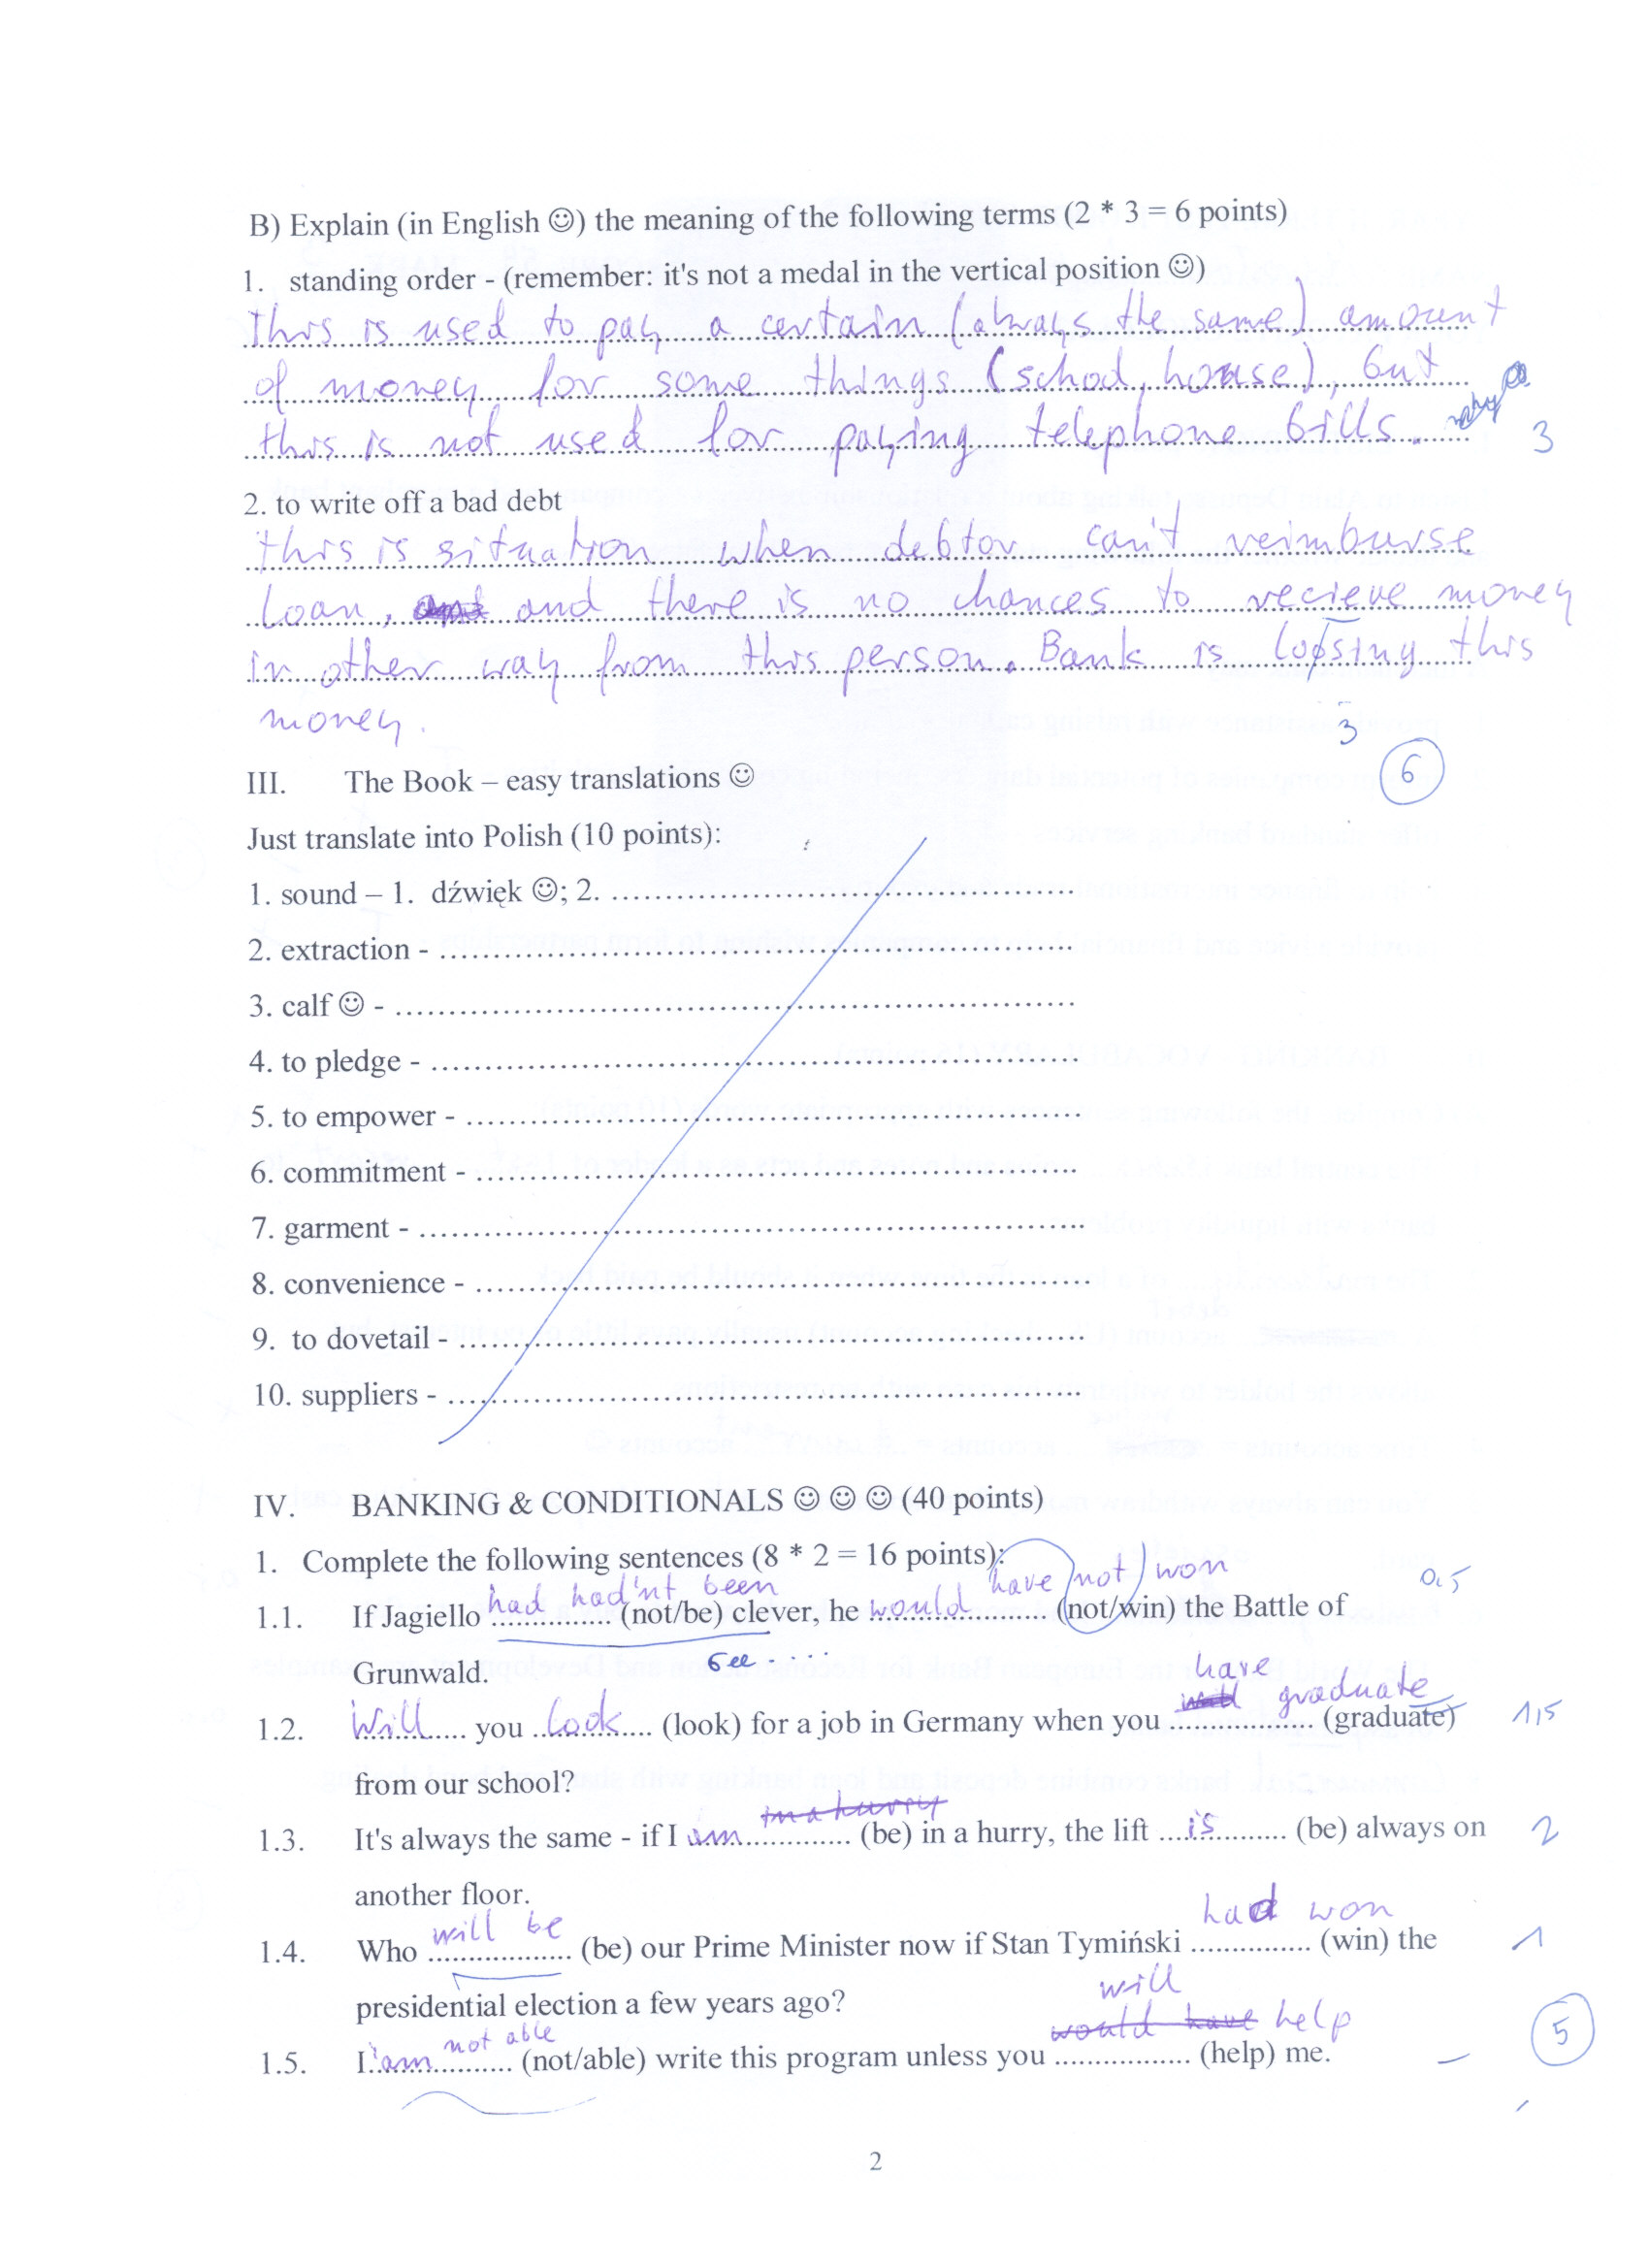 B) Explain (in English ☺) the meaning of the following terms (2 * 3 = 6 points)
1. standing order - (remember: it's not a medal in the vertical position ☺)
This is used to pay a certain (always the same) amount
of money for some things (school, house), but
this is not used for paying telephone bills.
3
2. to write off a bad debt
this is situation when debtor can't reimburse
loan, and there is no chances to recieve money
in other way from this person. Bank is loosing this
money.
3
6
III. The Book – easy translations ☺
Just translate into Polish (10 points):
1. sound – 1. dźwięk ☺; 2. ..........
2. extraction - ..........
3. calf ☺ - ..........
4. to pledge - ..........
5. to empower - ..........
6. commitment - ..........
7. garment - ..........
8. convenience - ..........
9. to dovetail - ..........
10. suppliers - ..........
IV. BANKING & CONDITIONALS ☺ ☺ ☺ (40 points)
1. Complete the following sentences (8 * 2 = 16 points):
1.1. If Jagiello had had'nt been (not/be) clever, he would have not won (not/win) the Battle of 0,5
Grunwald.
1.2. Will you look (look) for a job in Germany when you have graduate (graduate) 1,5
from our school?
1.3. It's always the same - if I am in a hurry (be) in a hurry, the lift is (be) always on 2
another floor.
1.4. Who will be (be) our Prime Minister now if Stan Tymiński had won (win) the 1
presidential election a few years ago?
1.5. I am not able (not/able) write this program unless you would have will help (help) me. –
5
2